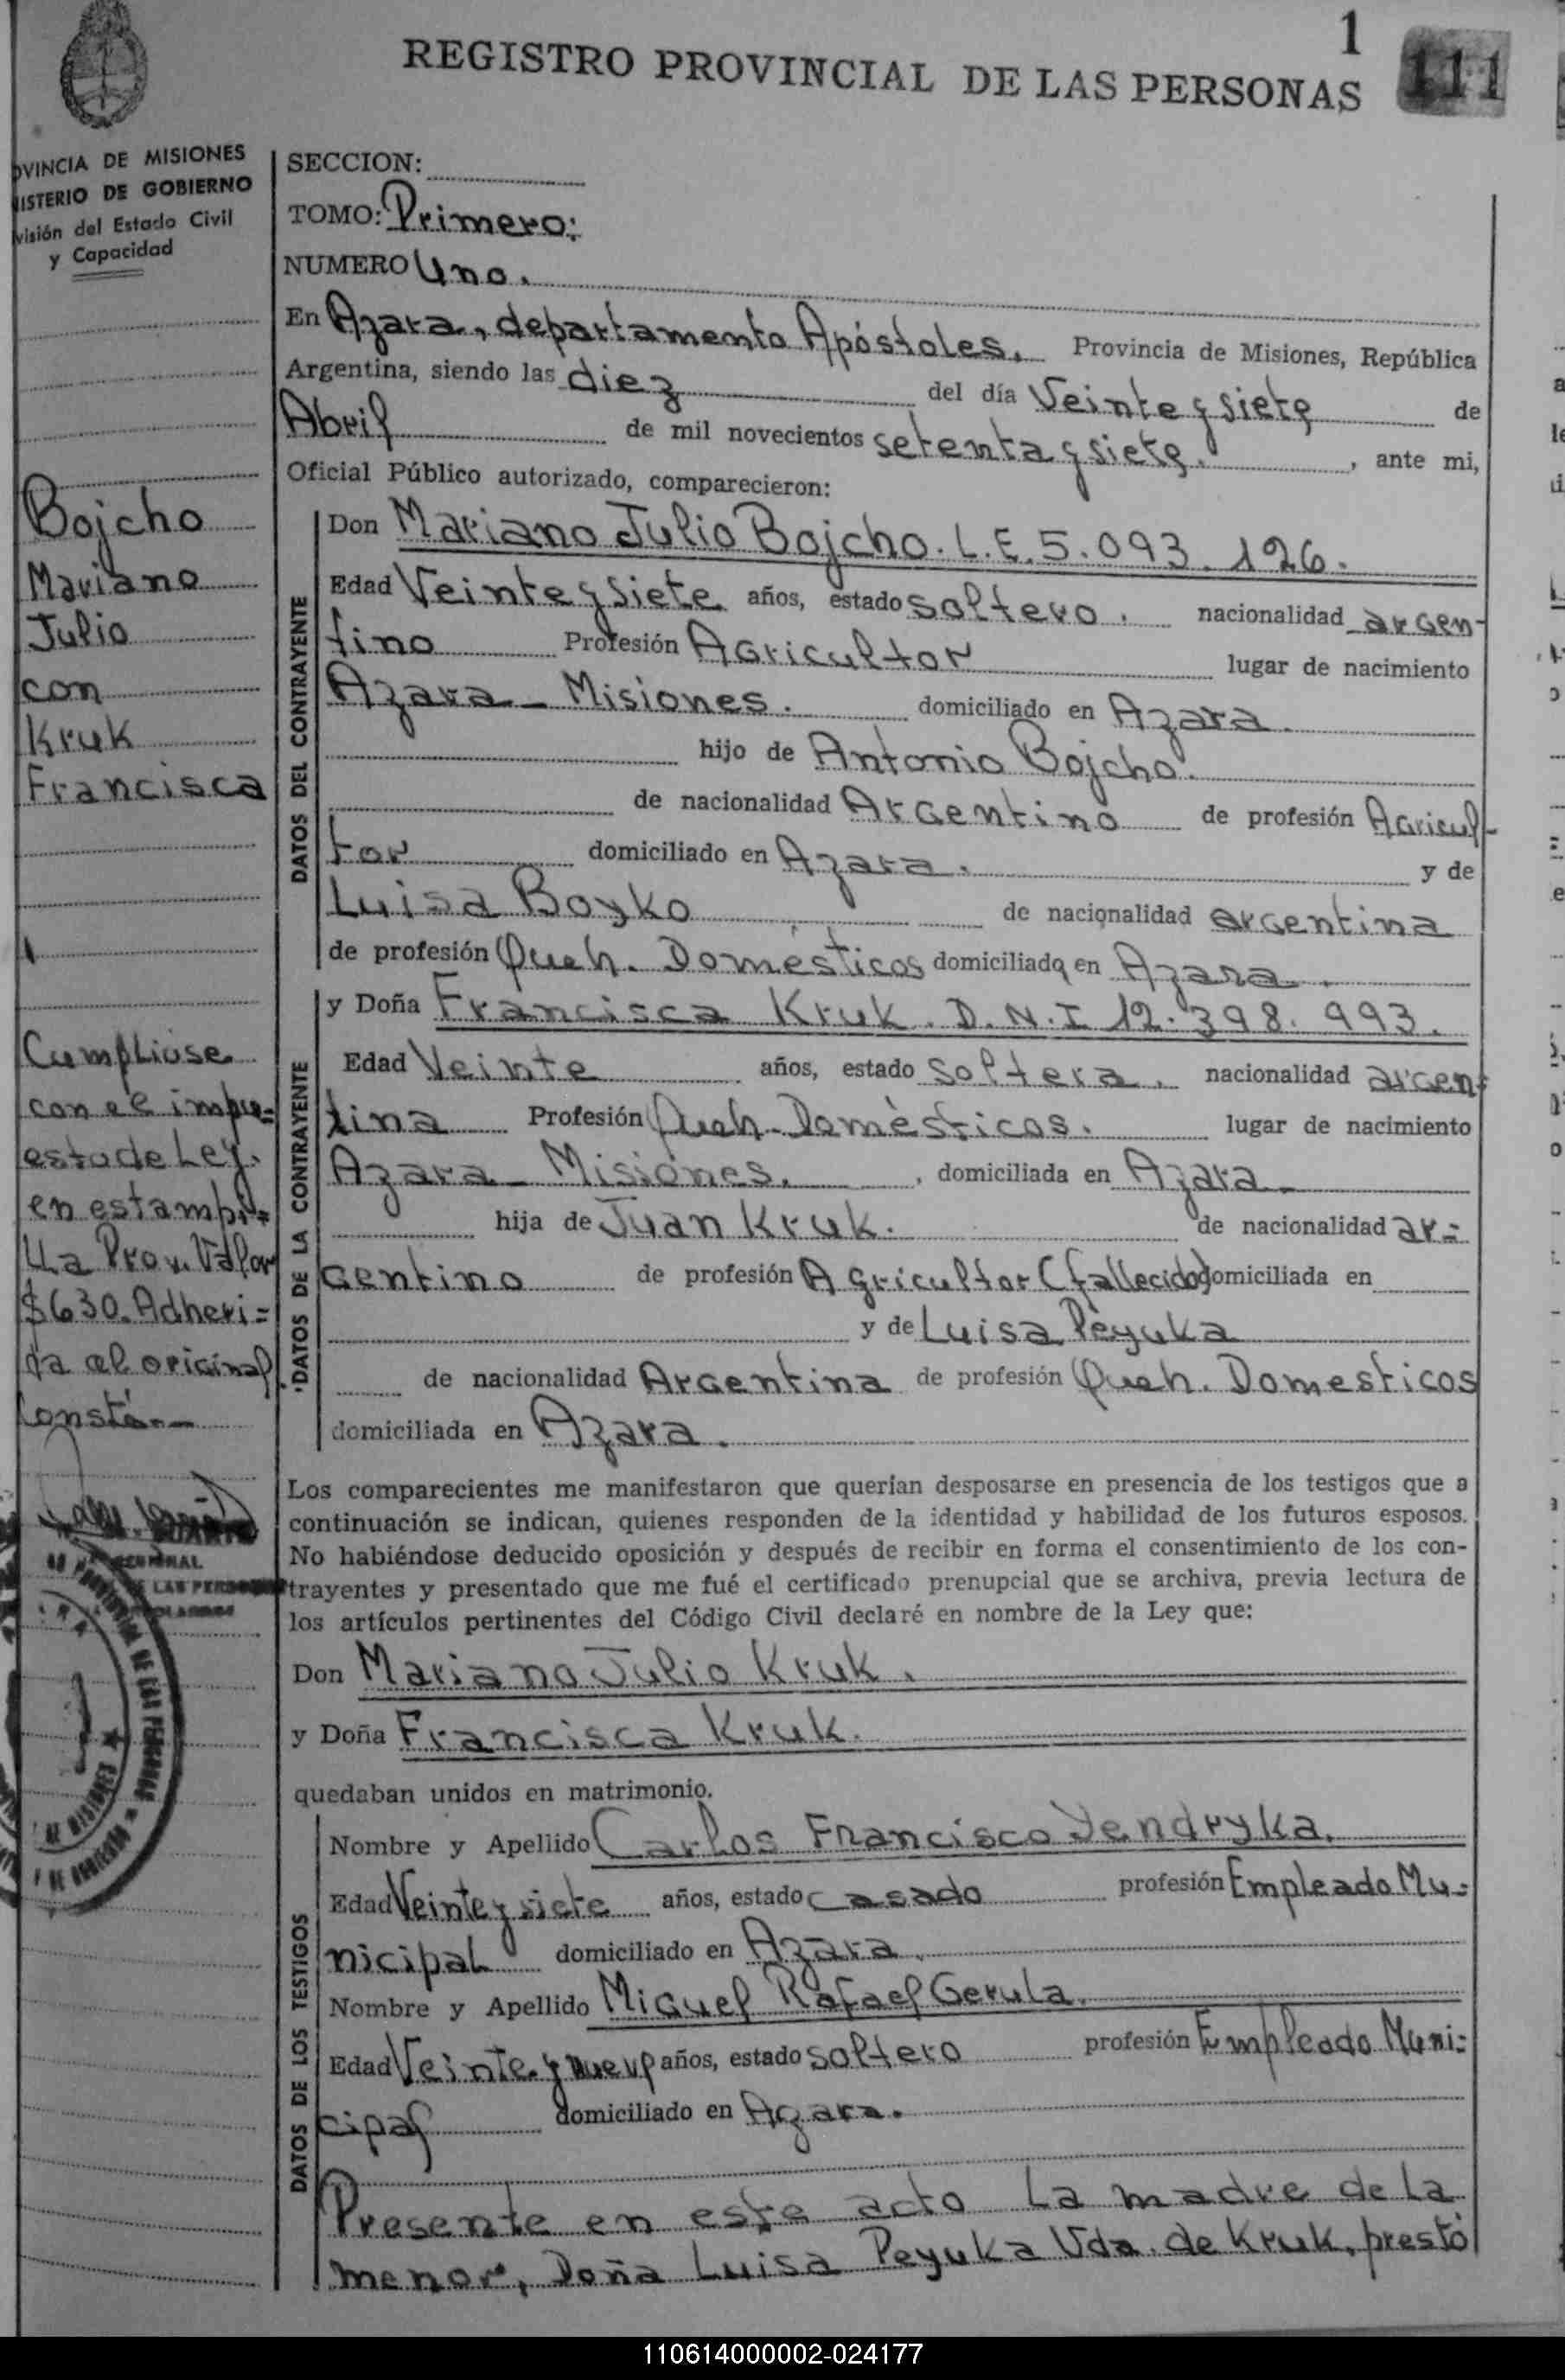 1
REGISTRO PROVINCIAL DE LAS PERSONAS
111
OVINCIA DE MISIONES
NISTERIO DE GOBIERNO
visión del Estado Civil
y Capacidad
SECCION:
TOMO: Primero:
NUMERO Uno.
En Azara, departamento Apóstoles. Provincia de Misiones, República
Argentina, siendo las diez del día Veinte y siete de
Abril de mil novecientos setenta y siete. , ante mi,
Oficial Público autorizado, comparecieron:
Bojcho
Mariano
Julio
con
Kruk
Francisca
DATOS DEL CONTRAYENTE
Don Mariano Julio Bojcho. L.E. 5.093.126.
Edad Veinte y Siete años, estado soltero. nacionalidad argen-
tino Profesión Agricultor lugar de nacimiento
Azara - Misiones. domiciliado en Azara.
hijo de Antonio Bojcho.
de nacionalidad Argentino de profesión Agricul-
tor domiciliado en Azara. y de
Luisa Boyko de nacionalidad argentina
de profesión Queh. Domésticos domiciliada en Azara.
y Doña Francisca Kruk. D.N.I 12.398.993.
Cumpliose
con el impu=
esto de Ley.
en estampi=
lla Prov. Valor
$630. Adheri=
da al original
Consté.-
DATOS DE LA CONTRAYENTE
Edad Veinte años, estado soltera. nacionalidad argen-
tina Profesión Queh. Domèsticos. lugar de nacimiento
Azara - Misiones. , domiciliada en Azara -
hija de Juan Kruk. de nacionalidad ar=
gentino de profesión Agricultor (fallecido) domiciliada en
y de Luisa Pèyuka
de nacionalidad Argentina de profesión Queh. Domesticos
domiciliada en Azara.
Los comparecientes me manifestaron que querían desposarse en presencia de los testigos que a
continuación se indican, quienes responden de la identidad y habilidad de los futuros esposos.
No habiéndose deducido oposición y después de recibir en forma el consentimiento de los con-
trayentes y presentado que me fué el certificado prenupcial que se archiva, previa lectura de
los artículos pertinentes del Código Civil declaré en nombre de la Ley que:
Don Mariano Julio Kruk.
y Doña Francisca Kruk.
quedaban unidos en matrimonio.
DATOS DE LOS TESTIGOS
Nombre y Apellido Carlos Francisco Jendryka.
Edad Veinte y siete años, estado casado profesión Empleado Mu=
nicipal domiciliado en Azara.
Nombre y Apellido Miguel Rafael Gerula.
Edad Veinte y nueve años, estado soltero profesión Empleado Muni=
cipal domiciliado en Azara.
Presente en este acto la madre de la
menor, Doña Luisa Peyuka Vda. de Kruk, prestó
110614000002-024177